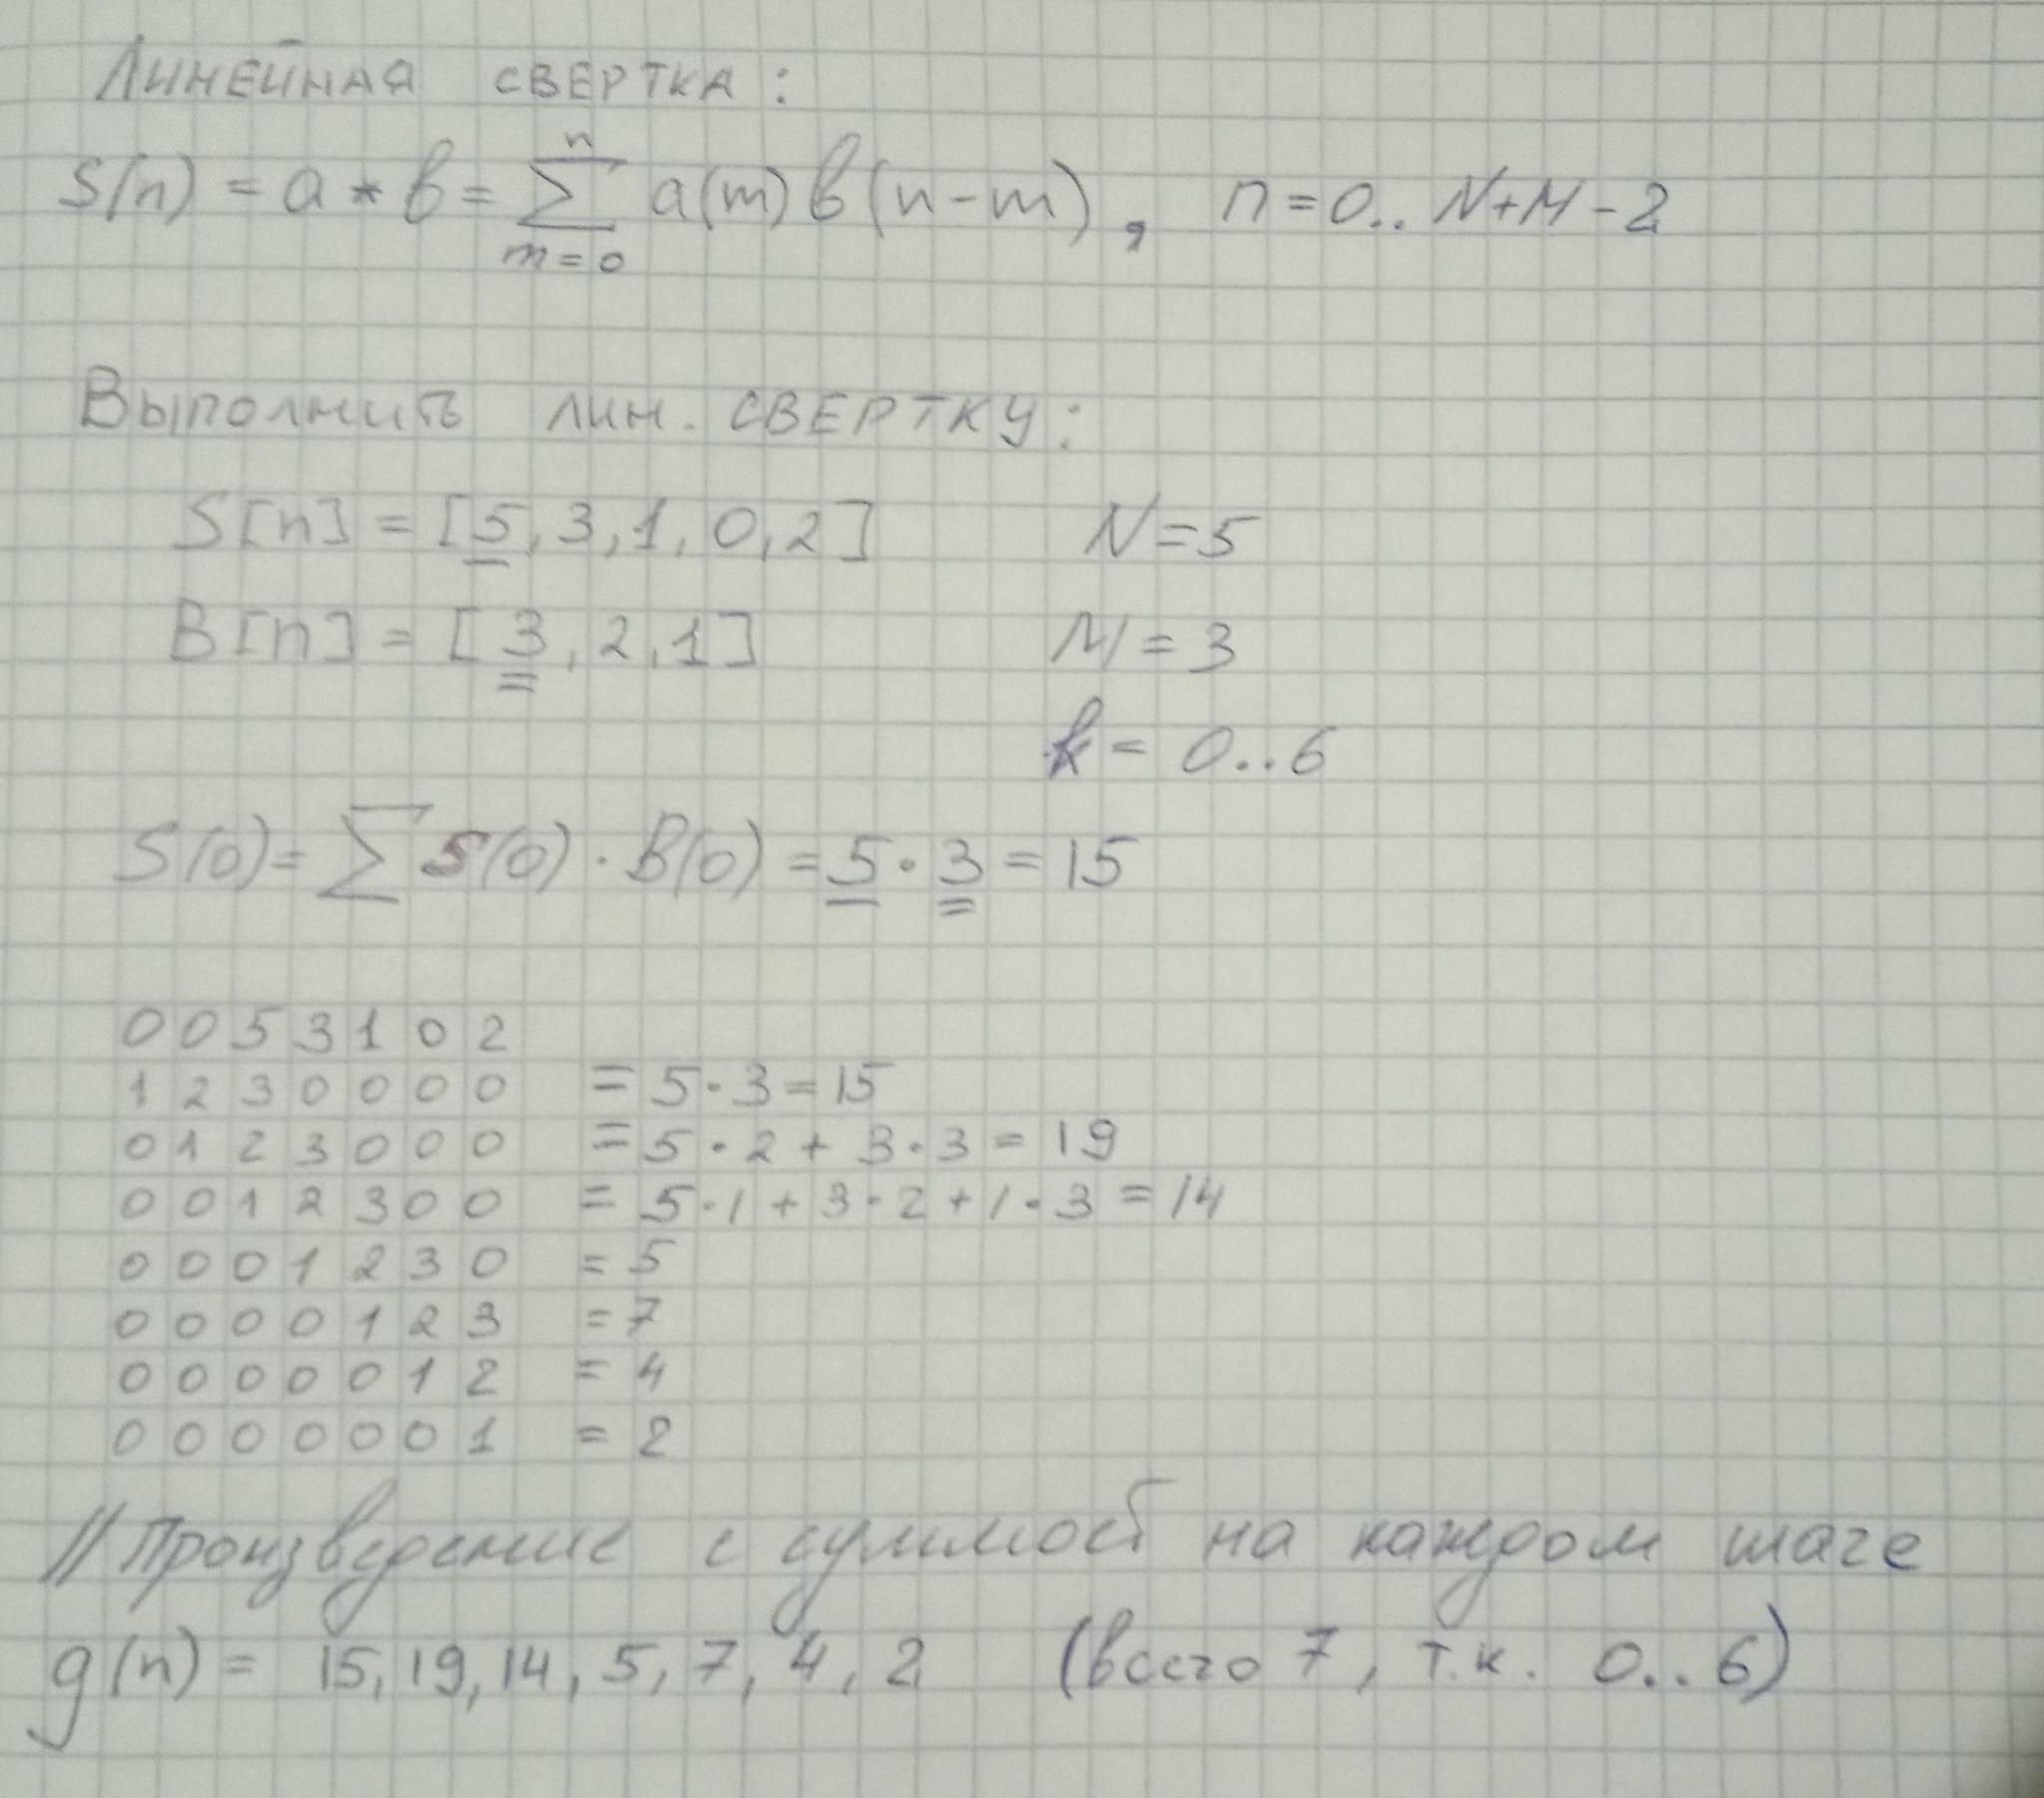 Линейная свертка:
S(n) = a * b = ∑ a(m) b(n-m), n=0.. N+M-2
n
m=0
Выполнить лин. свертку:
S[n] = [5, 3, 1, 0, 2] N=5
B[n] = [3, 2, 1] M=3
k = 0..6
S(0) = ∑ S(0) · B(0) = 5 · 3 = 15
0 0 5 3 1 0 2
1 2 3 0 0 0 0 = 5·3=15
0 1 2 3 0 0 0 = 5·2 + 3·3 = 19
0 0 1 2 3 0 0 = 5·1 + 3·2 + 1·3 = 14
0 0 0 1 2 3 0 = 5
0 0 0 0 1 2 3 = 7
0 0 0 0 0 1 2 = 4
0 0 0 0 0 0 1 = 2
// Произведение с суммой на каждом шаге
g(n) = 15, 19, 14, 5, 7, 4, 2 (всего 7, т.к. 0..6)